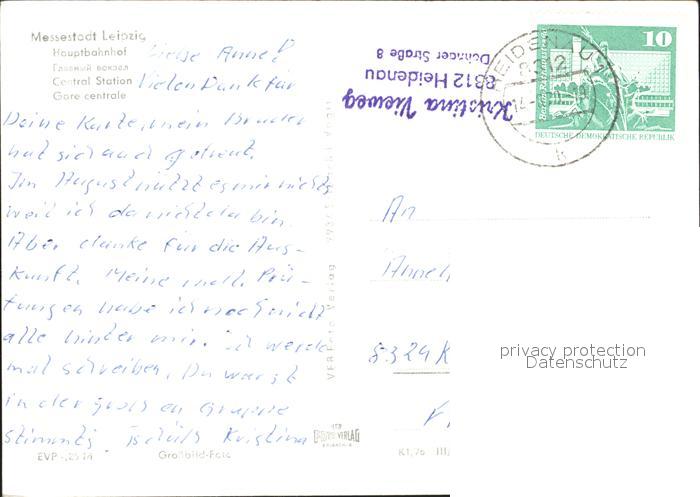 Messestadt Leipzig
Hauptbahnhof
Главный вокзал
Central Station
Gare centrale
Liebe Anne!
Vielen Dank für
Deine Karte, mein Bruder
hat sich auch gefreut.
Im August nützt es mir nichts
weil ich da nicht da bin.
Aber danke für die Aus-
kunft. Meine mdl. Prü-
fungen habe ich noch nicht
alle hinter mir. Ich werde
mal schreiben. Du warst
in der großen Gruppe
stimmts, Tschüß Kristina
EVP -,25 M
Großbild-Foto
VEB Foto-Verlag
FOTO-VERLAG
K1/76
Kristina Vieweg
8312 Heidenau
Dohnaer Straße 8
HEIDENAU 1
8312
10
DEUTSCHE DEMOKRATISCHE REPUBLIK
An
8324 K
privacy protection
Datenschutz